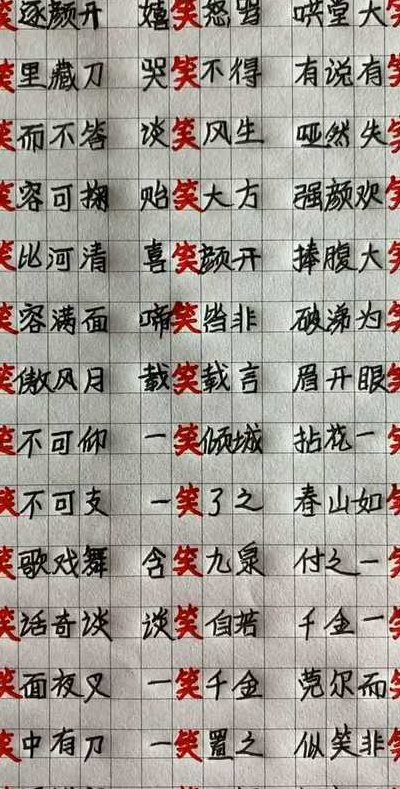 笑逐颜开 嬉笑怒骂 哄堂大笑
笑里藏刀 哭笑不得 有说有笑
笑而不答 谈笑风生 哑然失笑
笑容可掬 贻笑大方 强颜欢笑
笑比河清 喜笑颜开 捧腹大笑
笑容满面 啼笑皆非 破涕为笑
笑傲风月 载笑载言 眉开眼笑
笑不可仰 一笑倾城 拈花一笑
笑不可支 一笑了之 春山如笑
笑歌戏舞 含笑九泉 付之一笑
笑话奇谈 谈笑自若 千金一笑
笑面夜叉 一笑千金 莞尔而笑
笑中有刀 一笑置之 似笑非笑